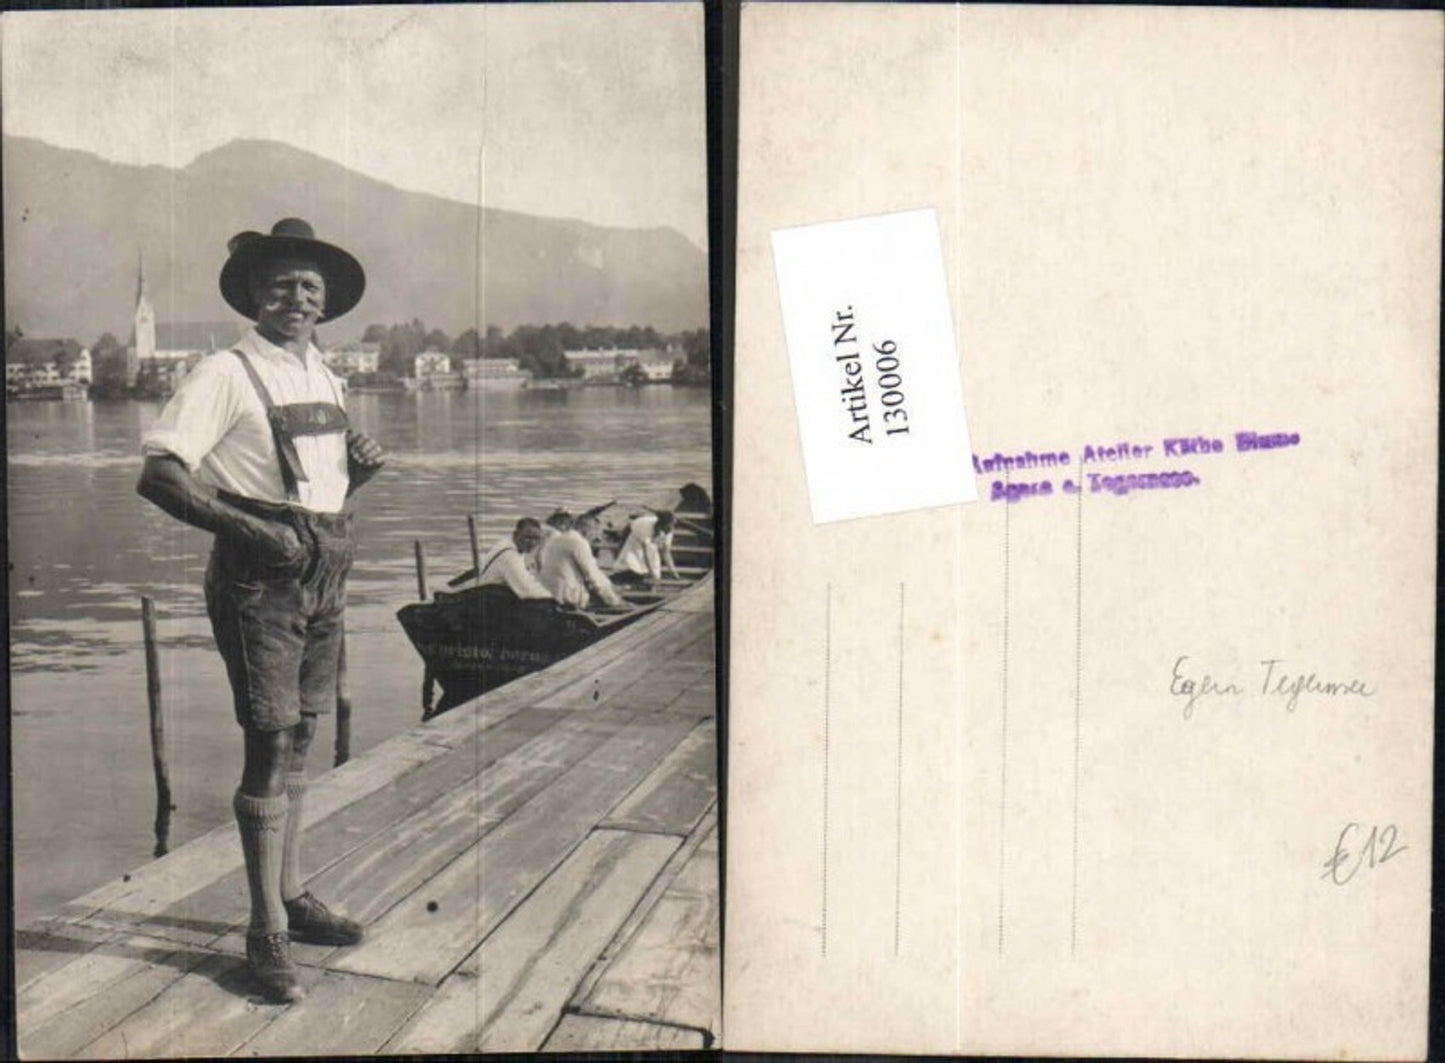 Artikel Nr.
130006
Aufnahme Atelier Käthe Blume
Egern a. Tegernsee.
Egern Tegernsee
€12